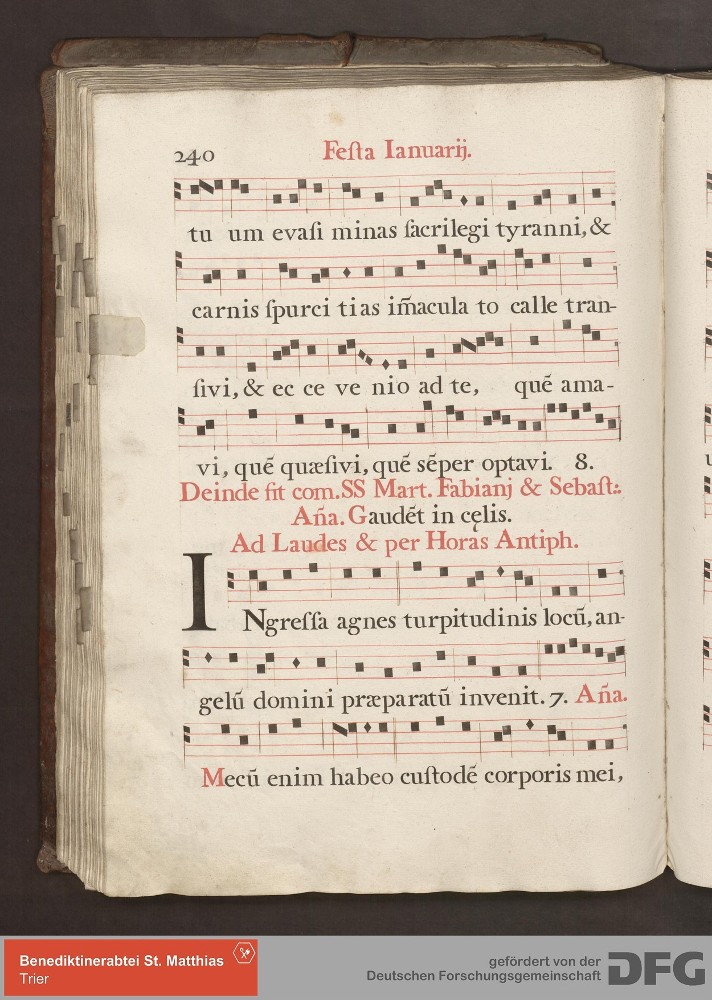 240 Feſta Ianuarij.
tu um evaſi minas ſacrilegi tyranni, &
carnis ſpurci tias im̃acula to calle tran-
ſivi, & ec ce ve nio ad te, quē ama-
vi, quē quæſivi, quē sēper optavi. 8.
Deinde fit com. SS Mart. Fabianj & Sebaſt:.
Añã. Gaudēt in cęlis.
Ad Laudes & per Horas Antiph.
INgreſſa agnes turpitudinis locū, an-
gelū domini præparatū invenit. 7. Aña.
Mecū enim habeo cuſtodē corporis mei,
Benediktinerabtei St. Matthias
Trier
gefördert von der
Deutschen Forschungsgemeinschaft
DFG